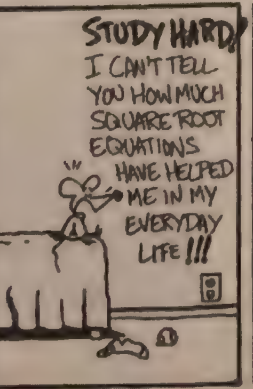 STUDY HARD!
I CAN'T TELL
YOU HOW MUCH
SQUARE ROOT
EQUATIONS
HAVE HELPED
ME IN MY
EVERYDAY
LIFE!!!